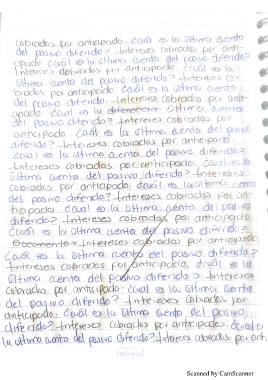 cobrados por anticipado. ¿cuál es la última cuenta
del pasivo diferido? Intereses cobrados por anti-
cipado ¿cuál es la última cuenta del pasivo diferido?
Intereses cobrados por anticipado. ¿cuál es la
última cuenta del pasivo diferido? Intereses co-
brados por anticipado. ¿cuál es la última cuenta
del pasivo diferido. Intereses cobrados por anti-
cipado ¿cuál es la diferencia última cuenta
del pasivo diferido? Intereses cobrados por
anticipado. ¿cuál es la última cuenta del pasivo
diferido? Intereses cobrados por anticipado.
¿cuál es la última cuenta del pasivo diferido?
Intereses cobrados por anticipado. ¿cuál es la
última cuenta del pasivo diferido? Intereses co-
brados por anticipado ¿cuál es la última cuenta
del pasivo diferido? Intereses cobrados por an-
ticipado. ¿cuál es la última cuenta del pasivo
diferido? Intereses cobrados por anticipado
¿cuál es la última cuenta del pasivo diferido?
Documento Intereses cobrados por anticipado.
¿cuál es la última cuenta del pasivo diferido?
Intereses cobrados por anticipado. ¿cuál es la
última cuenta del pasivo diferido? Intereses
cobrados por anticipado. ¿cuál es la última cuenta
del pasivo diferido? Intereses cobrados por
anticipado. ¿cuál es la última cuenta del pasivo
diferido? Intereses cobrados por anticipado. ¿cuál es
la última cuenta del pasivo diferido? Intereses cobrados por ant.
Scanned by CamScanner